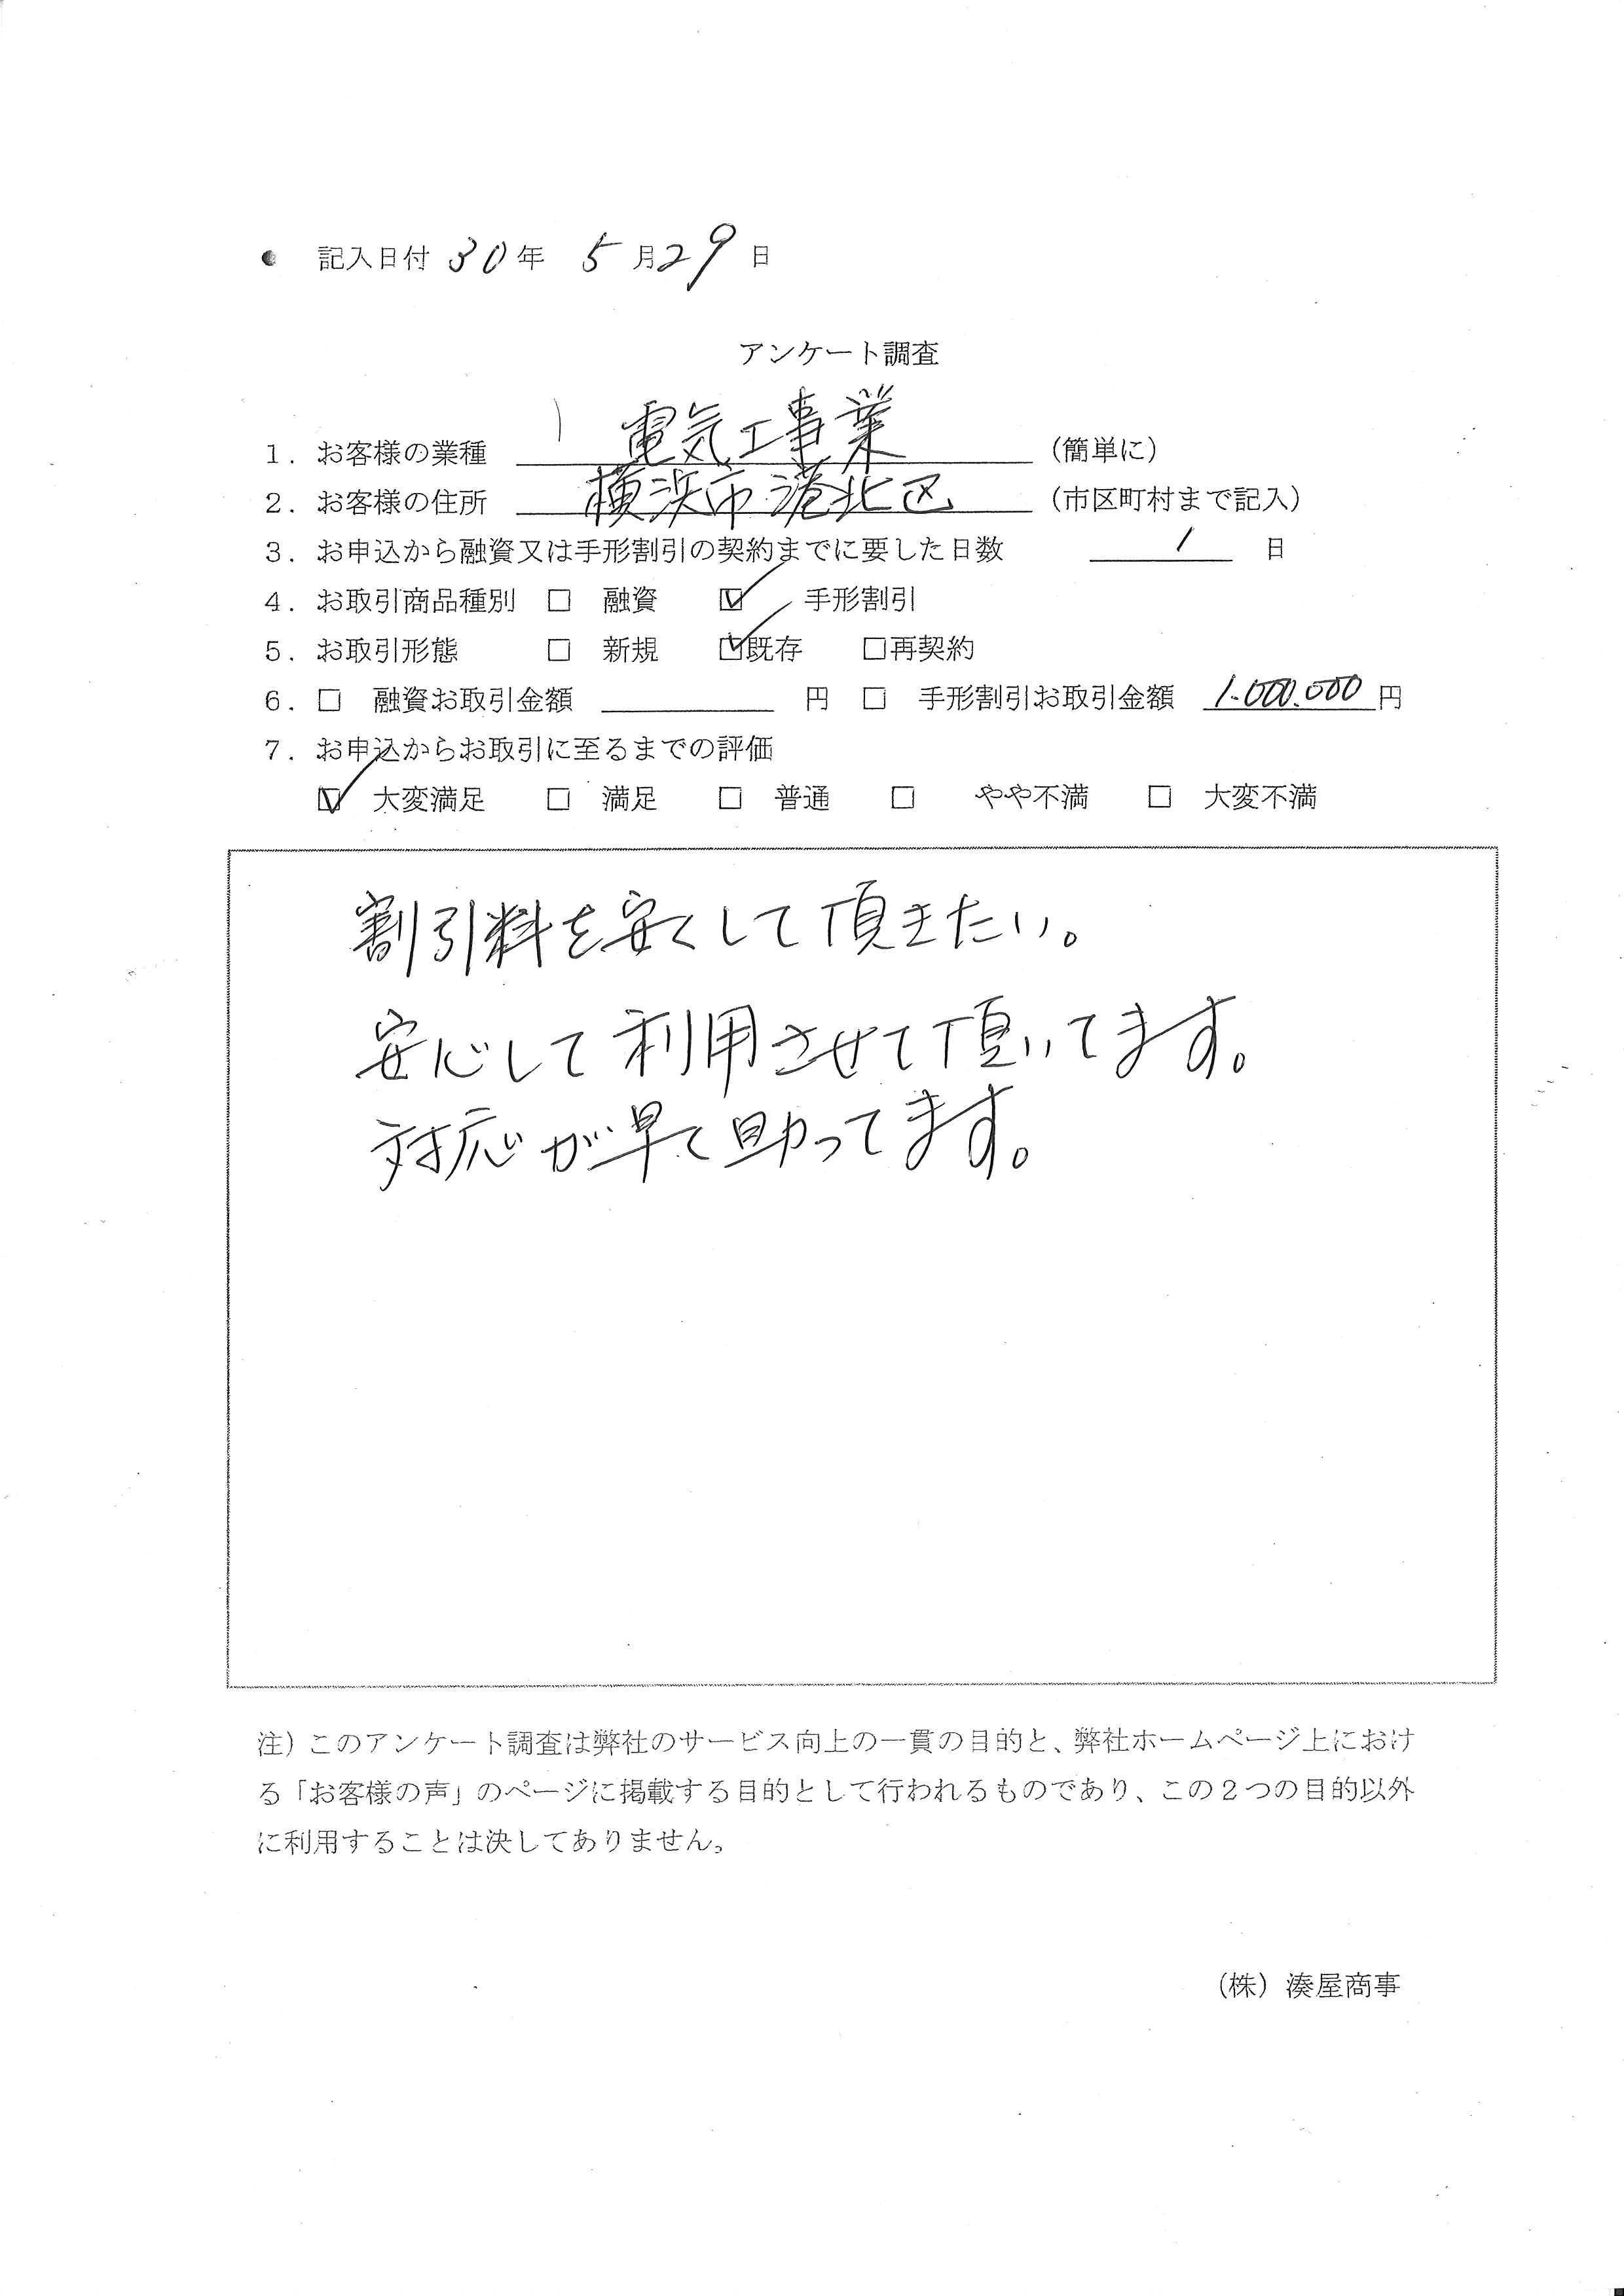 ● 記入日付 30年 5月29日
アンケート調査
1．お客様の業種 電気工事業 (簡単に)
2．お客様の住所 横浜市港北区 (市区町村まで記入)
3．お申込から融資又は手形割引の契約までに要した日数 1 日
4．お取引商品種別 □ 融資 ☑ 手形割引
5．お取引形態 □ 新規 ☑既存 □再契約
6．□ 融資お取引金額 円 □ 手形割引お取引金額 1.000.000円
7．お申込からお取引に至るまでの評価
☑ 大変満足 □ 満足 □ 普通 □ やや不満 □ 大変不満
割引料を安くして頂きたい。
安心して利用させて頂いてます。
対応が早くて助ってます。
注）このアンケート調査は弊社のサービス向上の一貫の目的と、弊社ホームページ上におけ
る「お客様の声」のページに掲載する目的として行われるものであり、この２つの目的以外
に利用することは決してありません。
（株）湊屋商事